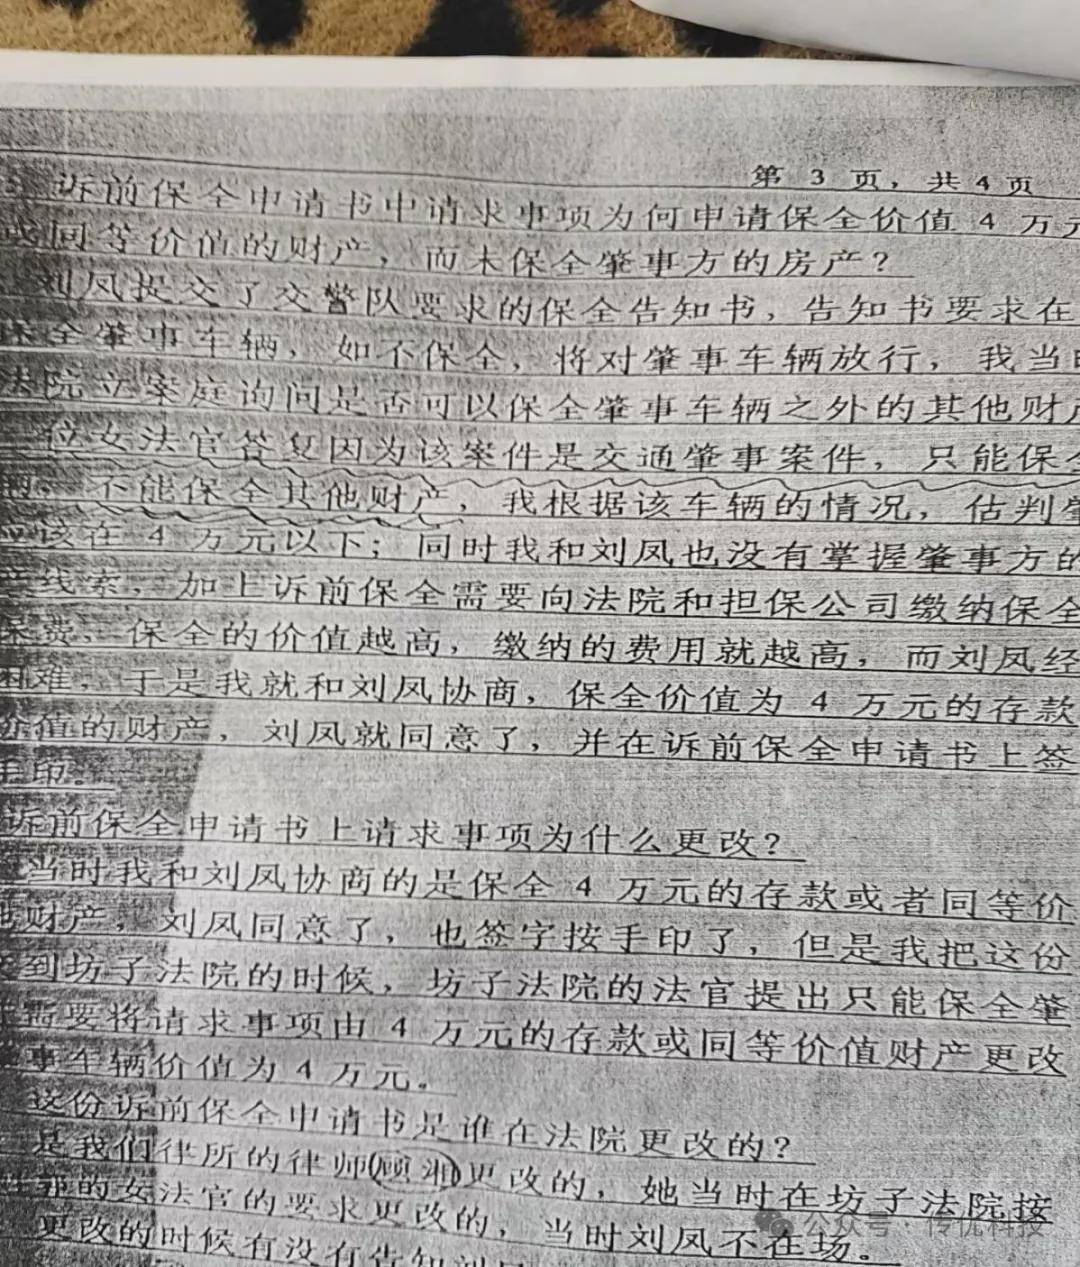 第 3 页，共 4 页
诉前保全申请书中请求事项为何申请保全价值 4 万元
或同等价值的财产，而未保全肇事方的房产？
刘凤提交了交警队要求的保全告知书，告知书要求在
保全肇事车辆，如不保全，将对肇事车辆放行，我当时
法院立案庭询问是否可以保全肇事车辆之外的其他财产
位女法官答复因为该案件是交通肇事案件，只能保全
辆，不能保全其他财产，我根据该车辆的情况，估判肇
应该在 4 万元以下；同时我和刘凤也没有掌握肇事方的
产线索，加上诉前保全需要向法院和担保公司缴纳保全
保费，保全的价值越高，缴纳的费用就越高，而刘凤经
困难，于是我就和刘凤协商，保全价值为 4 万元的存款
价值的财产，刘凤就同意了，并在诉前保全申请书上签
手印。
诉前保全申请书上请求事项为什么更改？
当时我和刘凤协商的是保全 4 万元的存款或者同等价
财产，刘凤同意了，也签字按手印了，但是我把这份
到坊子法院的时候，坊子法院的法官提出只能保全肇
需要将请求事项由 4 万元的存款或同等价值财产更改
事车辆价值为 4 万元。
这份诉前保全申请书是谁在法院更改的？
是我们律所的律师顾湘更改的，她当时在坊子法院按
郭的女法官的要求更改的，当时刘凤不在场。
更改的时候有没有告知刘
公众号·传优科技